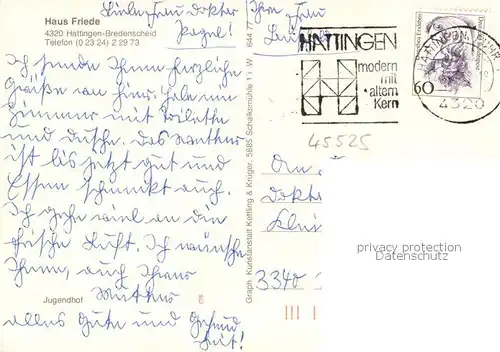 Haus Friede
4320 Hattingen-Bredenscheid
Telefon (0 23 24) 2 29 73
Liebe Frau Doktor
Ihre Frau
Ich sende Ihnen herzliche
Grüße von hier. Habe ein
Zimmer mit Toilette
und Dusche. Das Wetter
ist bis jetzt gut und
Essen schmeckt auch.
Ich gehe viel an die
frische Luft. Ich wünsche
Ihnen, auch Ihrer
Mutter
alles Gute und Gesund
heit!
Jugendhof
Graph. Kunstanstalt Kettling & Krüger, 5885 Schalksmühle 1 i. W. 644 77
HATTINGEN
modern
mit
altem
Kern
HATTINGEN, RUHR
4320
60
Deutsche Bundespost
45525
An
Doktor
3340
privacy protection
Datenschutz